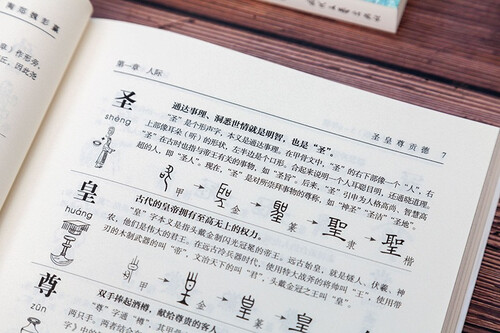 第一章 人际
圣皇尊贡德 7
圣
shèng
通达事理、洞悉世情就是明智，也是“圣”。
“圣”是个形声字，本义是通达事理。在甲骨文中，“圣”的右下部像一个“人”，右
上部像耳朵（听）的形状，左半边是个口形。合起来说明一个人耳聪目明，还通晓道理。
“圣”在古时也指与帝王有关的事物，如“圣旨”。后来，“圣”引申为人格高尚、智慧高
超的人，即“圣人”。现在，“圣”是对所崇拜事物的尊称，如“神圣”“圣洁”“圣地”。
甲 → 金 → 篆 → 聖 隶 → 聖 楷
皇
huáng
古代的皇帝拥有至高无上的权力。
“皇”字本义是指头戴金制闪光冠冕的帝王。远古始皇，就是燧人、伏羲、神
农，他们是伟大的君王。在远古冷兵器时代，使用特大战斧的将帅叫“王”，使用带
刃的木制武器的叫“帝”，文治天下的叫“君”，头戴金冠之王叫“皇”。
甲 → 金 → 篆
尊
zūn
双手捧起酒樽，献给尊贵的客人
“尊”字通“樽”，其甲骨
两只手。两者结合在
字）中的
作形旁，
丘，因此尧